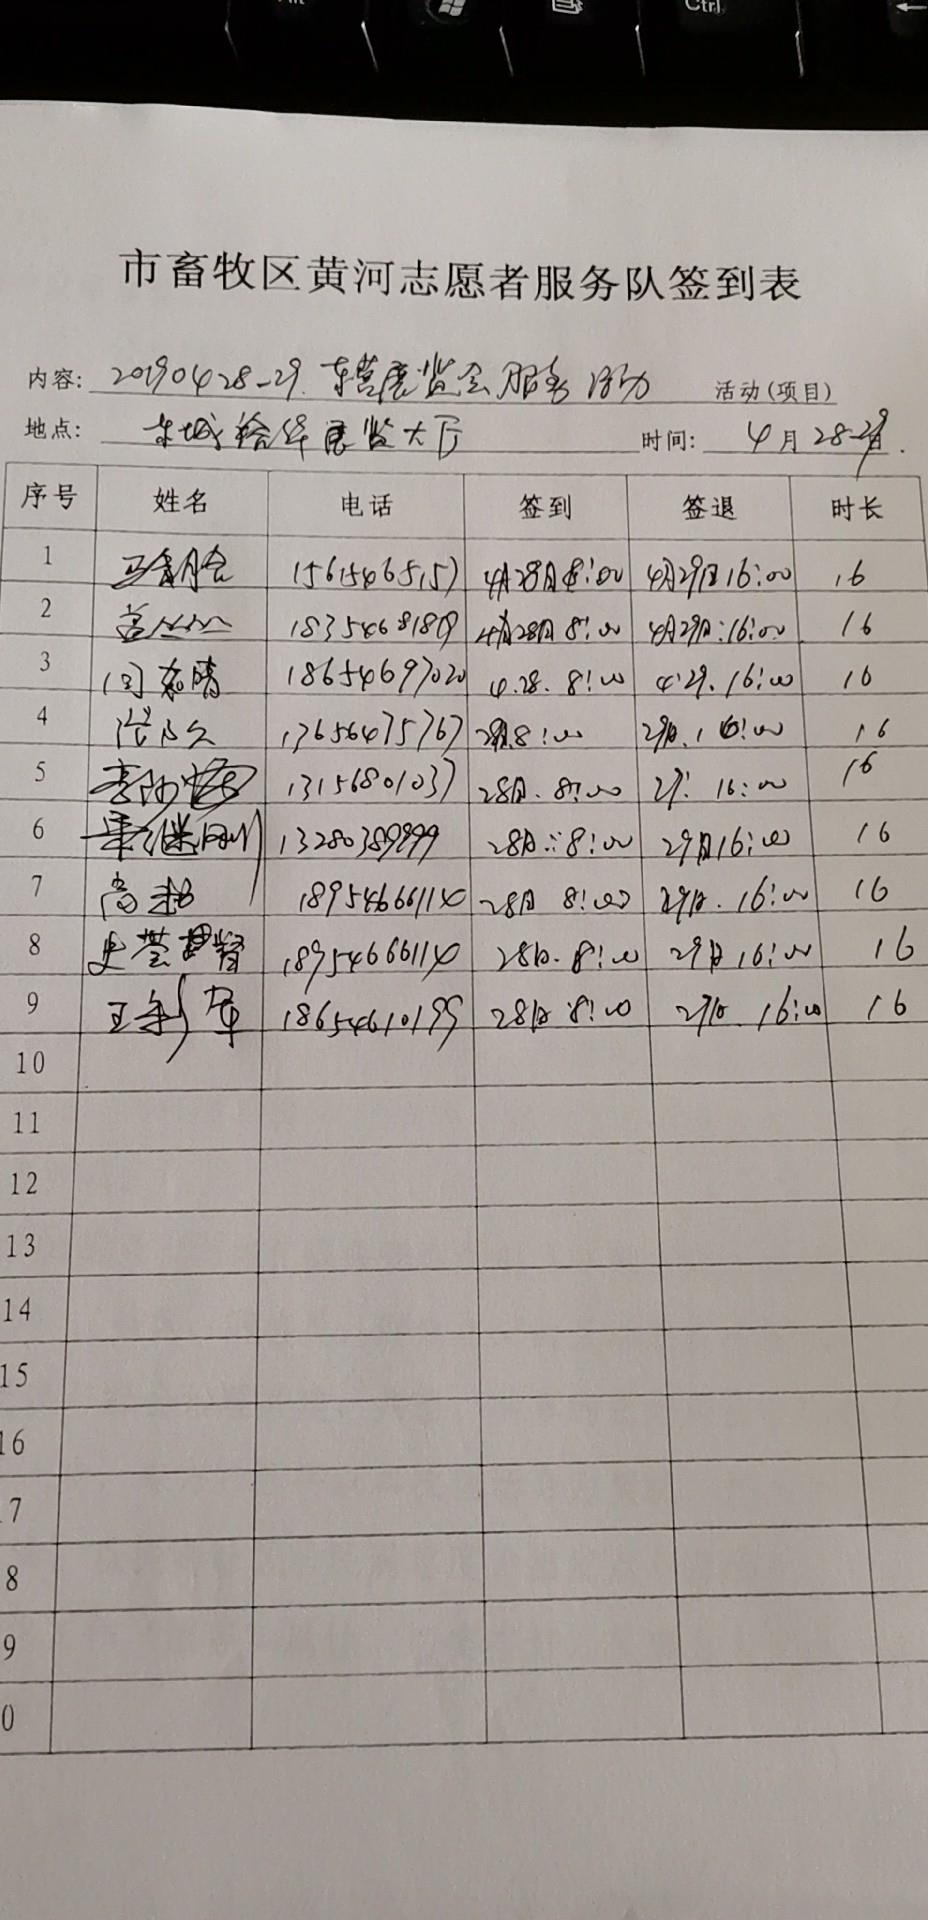 Alt
Ctrl
市畜牧区黄河志愿者服务队签到表
内容: 20190428-29. 东营展览会服务活动 活动(项目)
地点: 东城 展览大厅 时间: 4月28-29日.
序号 姓名 电话 签到 签退 时长
1 15615465157 4月28日8:00 4月29日16:00 16
2 18354681819 4月28日8:00 4月29日:16:00 16
3 18654697020 4.28. 8:00 4.29. 16:00 16
4 13656475767 8:00 29日.16:00 16
5 13156801037 28日. 8:00 29: 16:00 16
6 梁继刚 13280389899 28日:8:00 29日16:00 16
7 高超 28日 8:00 29日. 16:00 16
8 28日. 8:00 29日16:00 16
9 王新军 18654610199 28日:8:00 29日. 16:00 16
10
11
12
13
14
15
16
7
8
9
0